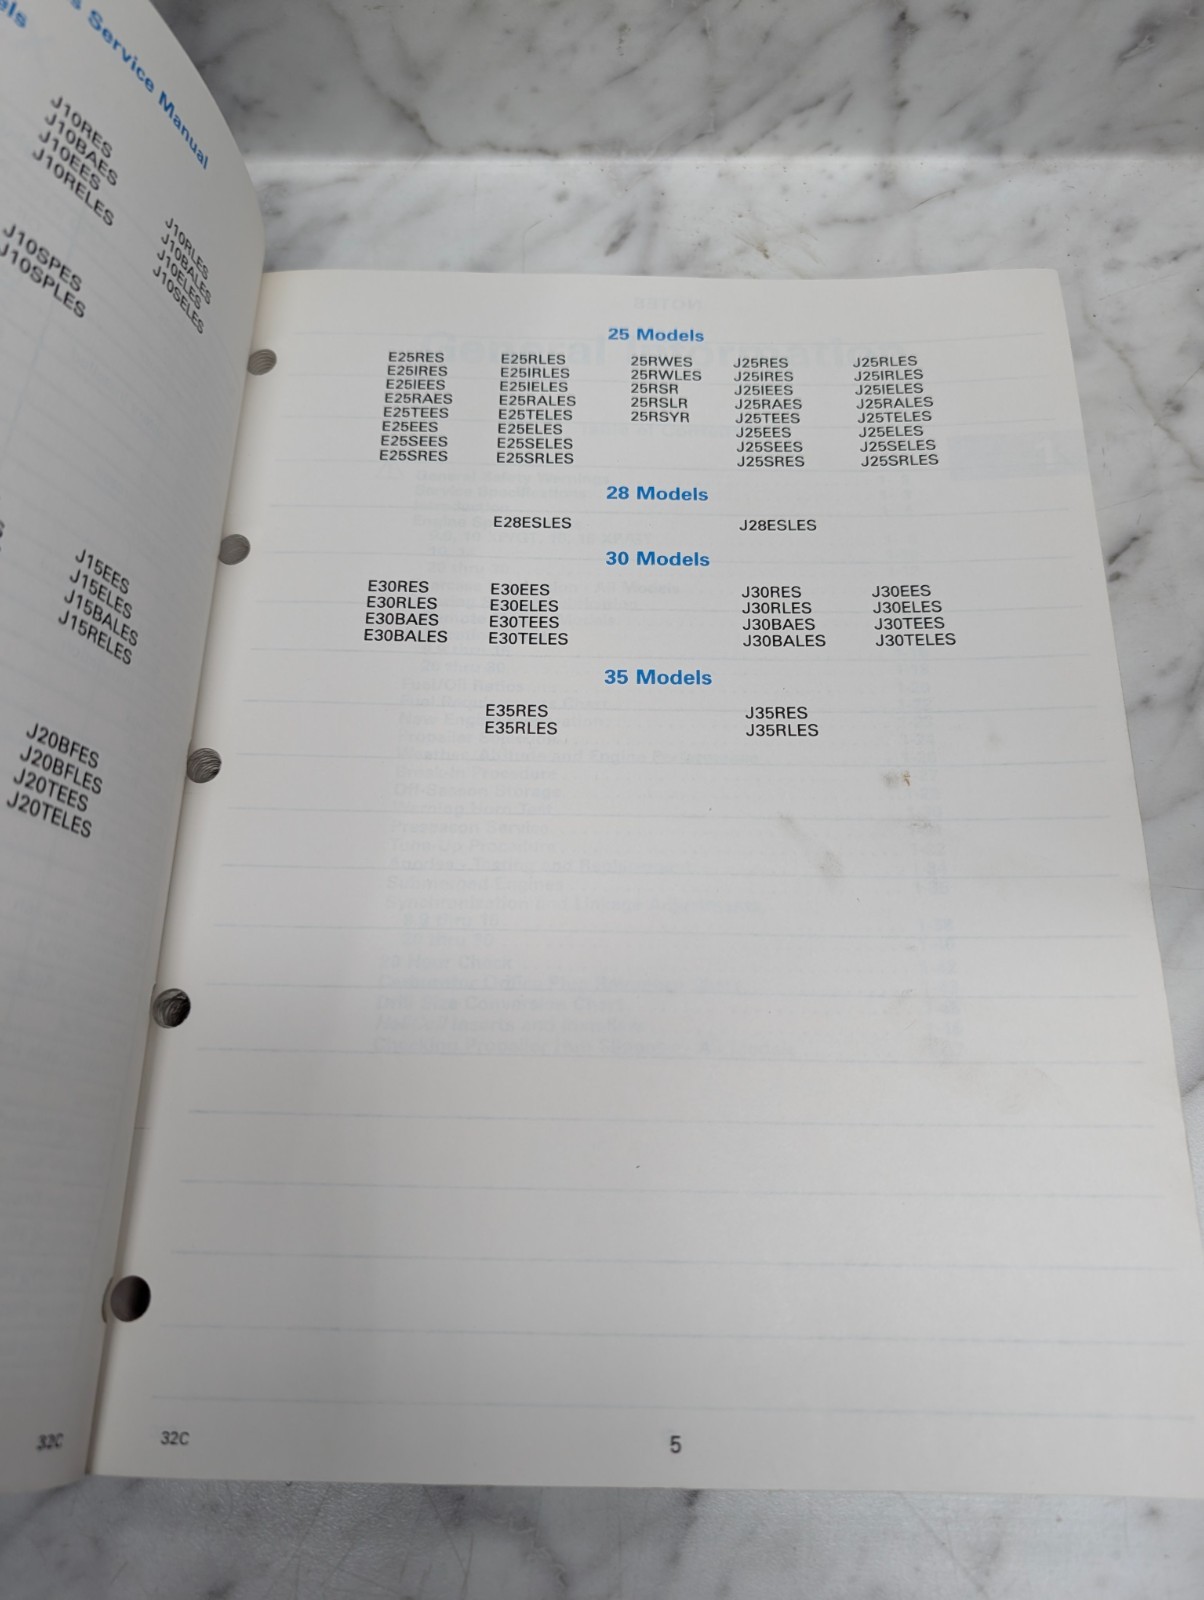 s Service Manual
els
J10RES
J10BAES
J10EES
J10RELES
J10RLES
J10BALES
J10ELES
J10SELES
J10SPES
J10SPLES
J15EES
J15ELES
J15BALES
J15RELES
J20BFES
J20BFLES
J20TEES
J20TELES
32C
25 Models
E25RES E25RLES 25RWES J25RES J25RLES
E25IRES E25IRLES 25RWLES J25IRES J25IRLES
E25IEES E25IELES 25RSR J25IEES J25IELES
E25RAES E25RALES 25RSLR J25RAES J25RALES
E25TEES E25TELES 25RSYR J25TEES J25TELES
E25EES E25ELES J25EES J25ELES
E25SEES E25SELES J25SEES J25SELES
E25SRES E25SRLES J25SRES J25SRLES
28 Models
E28ESLES J28ESLES
30 Models
E30RES E30EES J30RES J30EES
E30RLES E30ELES J30RLES J30ELES
E30BAES E30TEES J30BAES J30TEES
E30BALES E30TELES J30BALES J30TELES
35 Models
E35RES J35RES
E35RLES J35RLES
32C 5